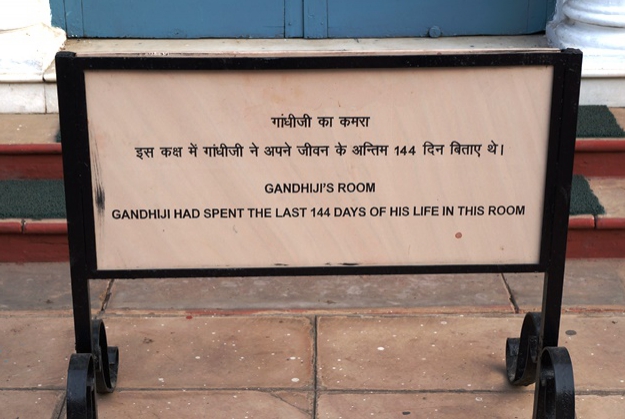 गांधीजी का कमरा
इस कक्ष में गांधीजी ने अपने जीवन के अन्तिम 144 दिन बिताए थे।
GANDHIJI'S ROOM
GANDHIJI HAD SPENT THE LAST 144 DAYS OF HIS LIFE IN THIS ROOM